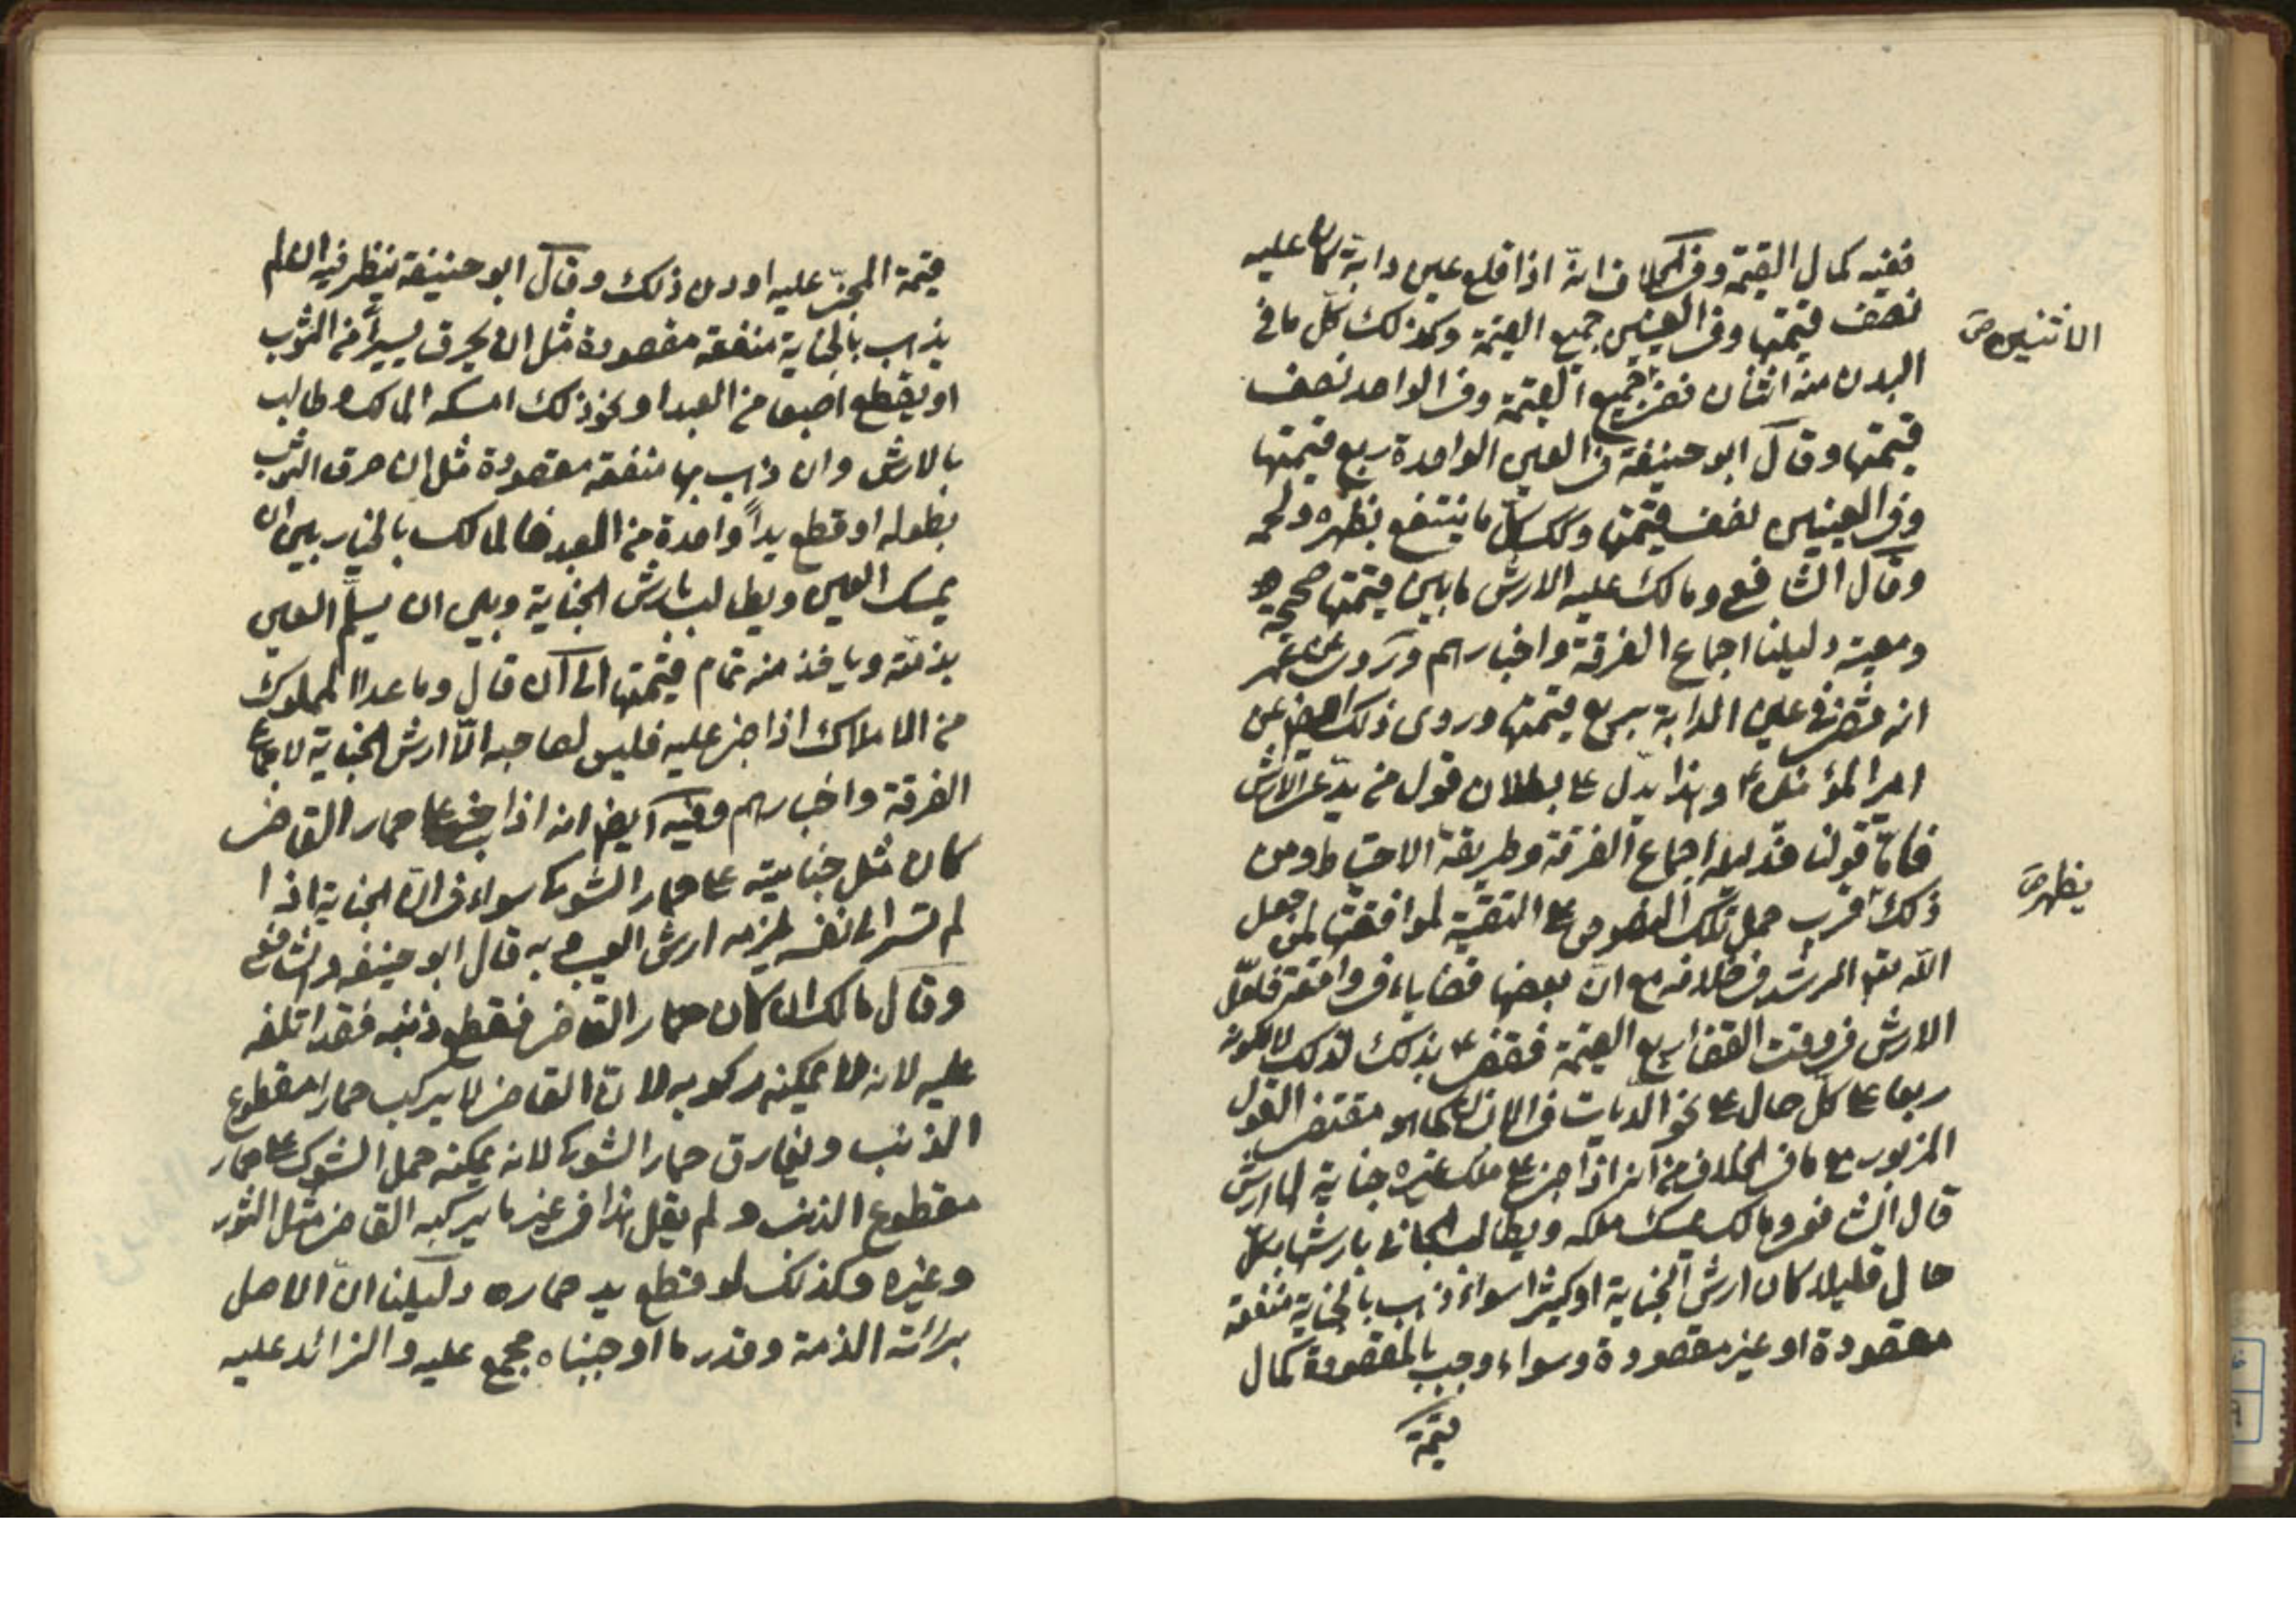 ففيه كمال القيمة وفى الخلاف انّه اذا قلع عين دابّة كان عليه
نصف قيمتها وفى العينين جميع القيمة وكذلك كلّ ما فى
الاثنين ص
البدن منه اثنان ففى جميع القيمة وفى الواحد نصف
قيمتها وقال ابو حنيفة فى العين الواحدة ربع قيمتها
وفى العينين نصف قيمتها وكك كلّ ما ينتفع بظهره ولحمه
وقال الشافعى ومالك عليه الارش ما بين قيمتها صحيحة
ومعيبة دليلنا اجماع الفرقة واخبارهم وروى عن عمر
انه قضى فى عين الدابة بربع قيمتها وروى ذلك ايضا عن
امير المؤمنين ع وهذا يدّل على بطلان قول من يدّعى الارش
فامّا قولنا فدليله اجماع الفرقة وطريقة الاحتياط ومن
يظهر ص
ذلك اقرب حمل تلك النصوص على التقية لموافقتها لمن جعل
الله تعالى الرشد فى خلافه مع ان بعضها قضاياء فى واقعة فلعلّ
الارش فى وقت القضا ربع القيمة فقضى ع بذلك لذلك لا لكونه
ربعا على كلّ حال على نحو الديات فى الانسان كما هو مقتضى القول
المزبور مع ما فى الخلاف من انه اذا جنى على ملك غيره جناية لها ارش
قال الشافعى ومالك يمسك ملكه ويطالب الجانى بارشها بكلّ
حال قليلا كان ارش الجناية او كثيرا سواء ذهب بالجناية منفعة
مقصودة او غير مقصودة وسواء وجب بالمقصودة كمال
قيمة
قيمة المجنّى عليه او دون ذلك وقال ابو حنيفة ينظر فيه ان لم
يذهب بالجناية منفعة مقصودة مثل ان يحرق يسيراً من الثوب
او يقطع اصبعا من العبد او نحو ذلك امسكه المالك وطالب
بالارش وان ذهب بها منفعة مقصودة مثل ان حرق الثوب
بطوله او قطع يداً واحدة من العبد فالمالك بالخيار بين ان
يمسك العين ويطالب بارش الجناية وبين ان يسلّم العين
بذمّته وياخذ منه تمام قيمتها الى ان قال وما عدا المملوك
من الاملاك اذا جنى عليه فليس لصاحبه الّا ارش الجناية لاجماع
الفرقة واخبارهم وفيه ايضا انه اذا جنى على حمار القاضى
كان مثل جنايته على حمار الشوك سواء فى انّ الجناية اذا
لم تسر الى نفسه يلزمه ارش العيب وبه قال ابو حنيفه والشافعى
وقال مالك ان كان حمار القاضى فقطع ذنبه فقد اتلفه
عليه لانه لا يمكنه ركوبه لانّ القاضى لا يركب حمارا مقطوع
الذنب ويفارق حمار الشوك لانه يمكنه حمل الشوك على حمار
مقطوع الذنب ولم يقل هذا فى غير ما يركبه القاضى مثل الثور
وغيره وكذلك لو قطع يد حماره دليلنا انّ الاصل
برائة الذمة وقدر ما اوجبناه مجمع عليه والزائد عليه